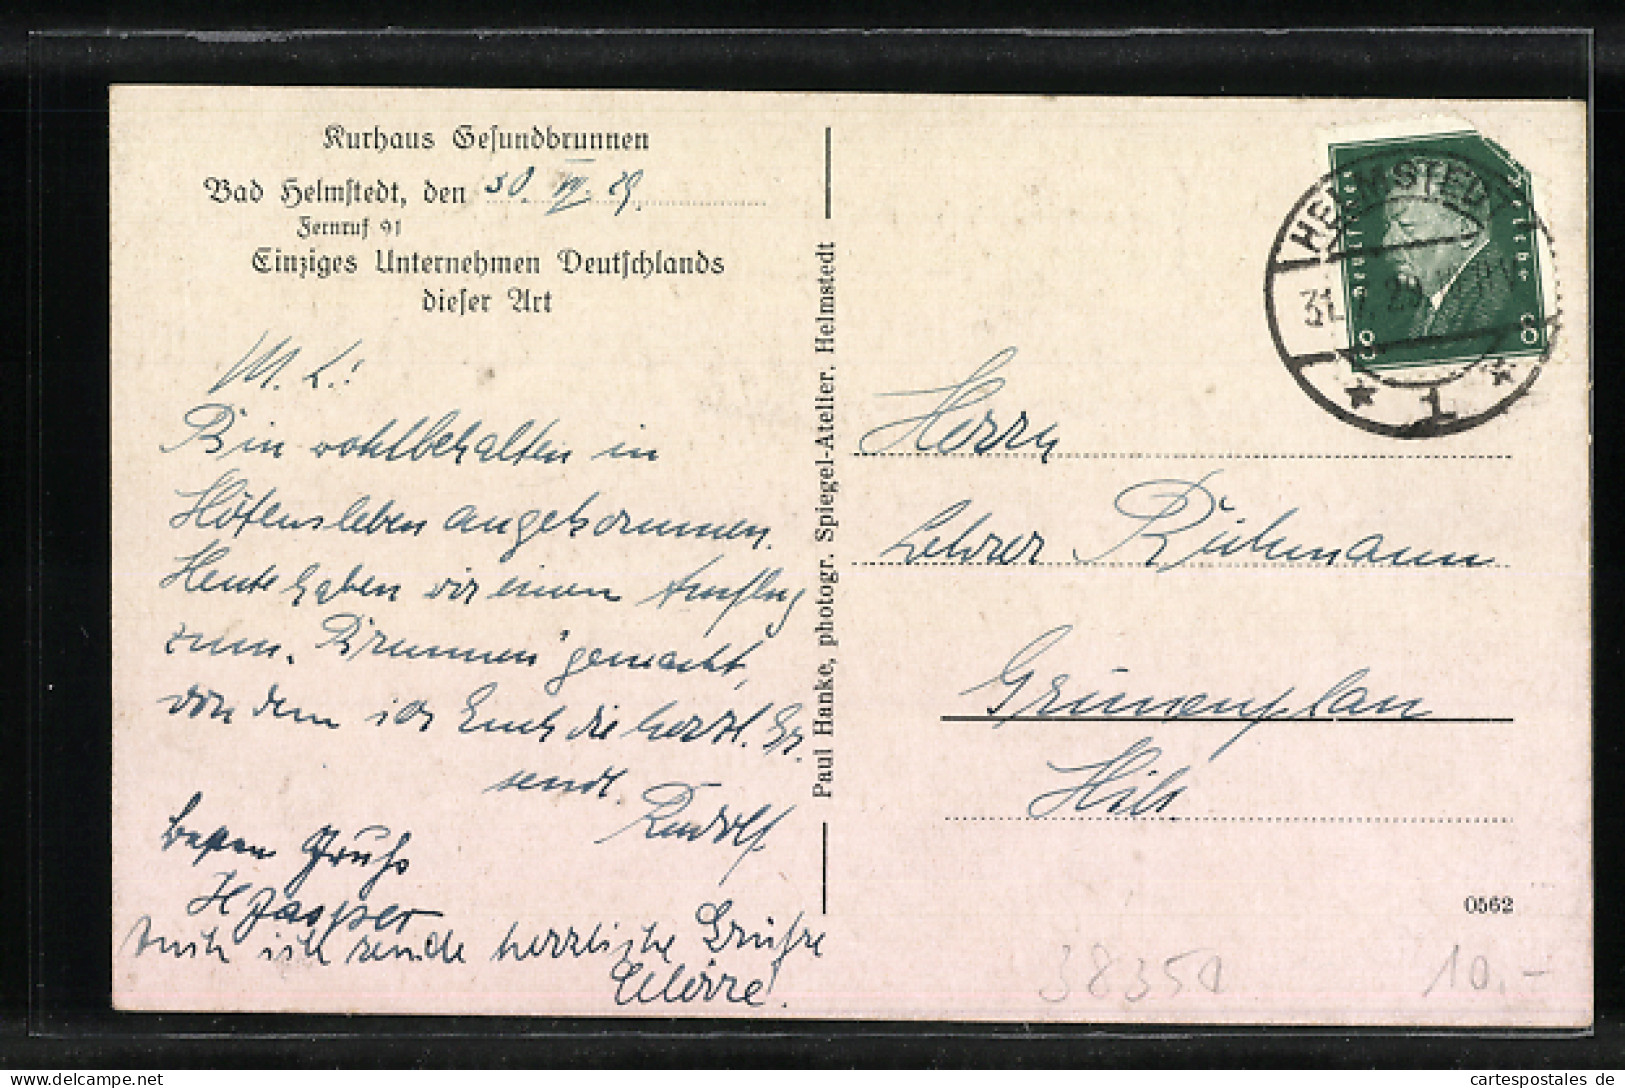 Kurhaus Gesundbrunnen
Bad Helmstedt, den 30. VII. 29.
Fernruf 91
Einziges Unternehmen Deutschlands
dieser Art
M. L.!
Bin wohlbehalten in
Hötensleben angekommen.
Heute haben wir einen Ausflug
zum "Brunnen" gemacht,
von dem ich Euch die herzl. Gr.
sendt
Rudolf
besten Gruß
H Jasper
Auch ich sende herzliche Grüße
Paul Hanke, photogr. Spiegel-Atelier, Helmstedt
HELMSTEDT
31. 7. 29.
* 1 *
Deutsches Reich
8 8
Herrn
Lehrer Rühmann
Grünenplan
Hils
0562
38351
10.-
cartespostales de